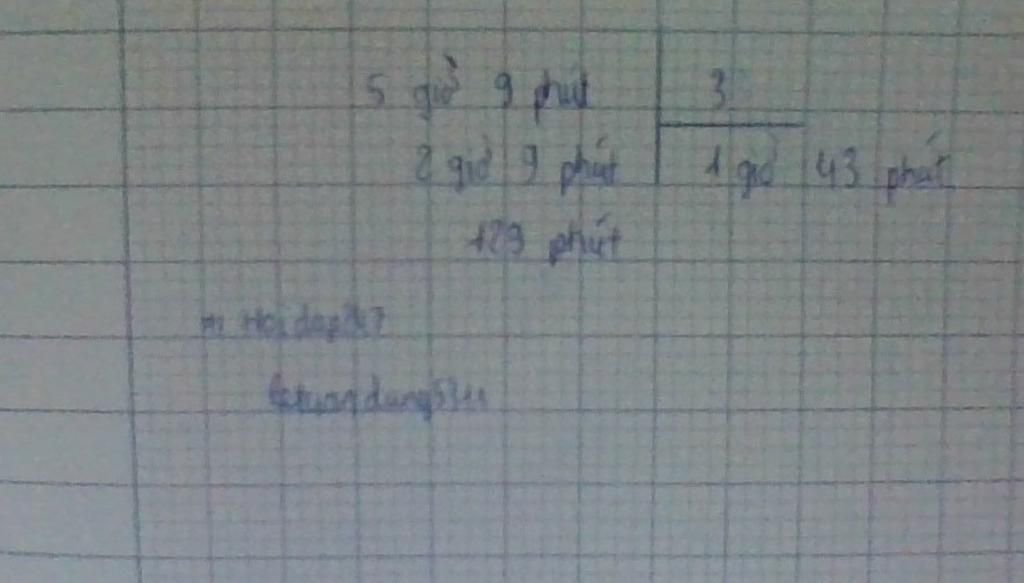 5 giờ 9 phút 3
2 giờ 9 phút 1 giờ 43 phút
129 phút
Hoidap247